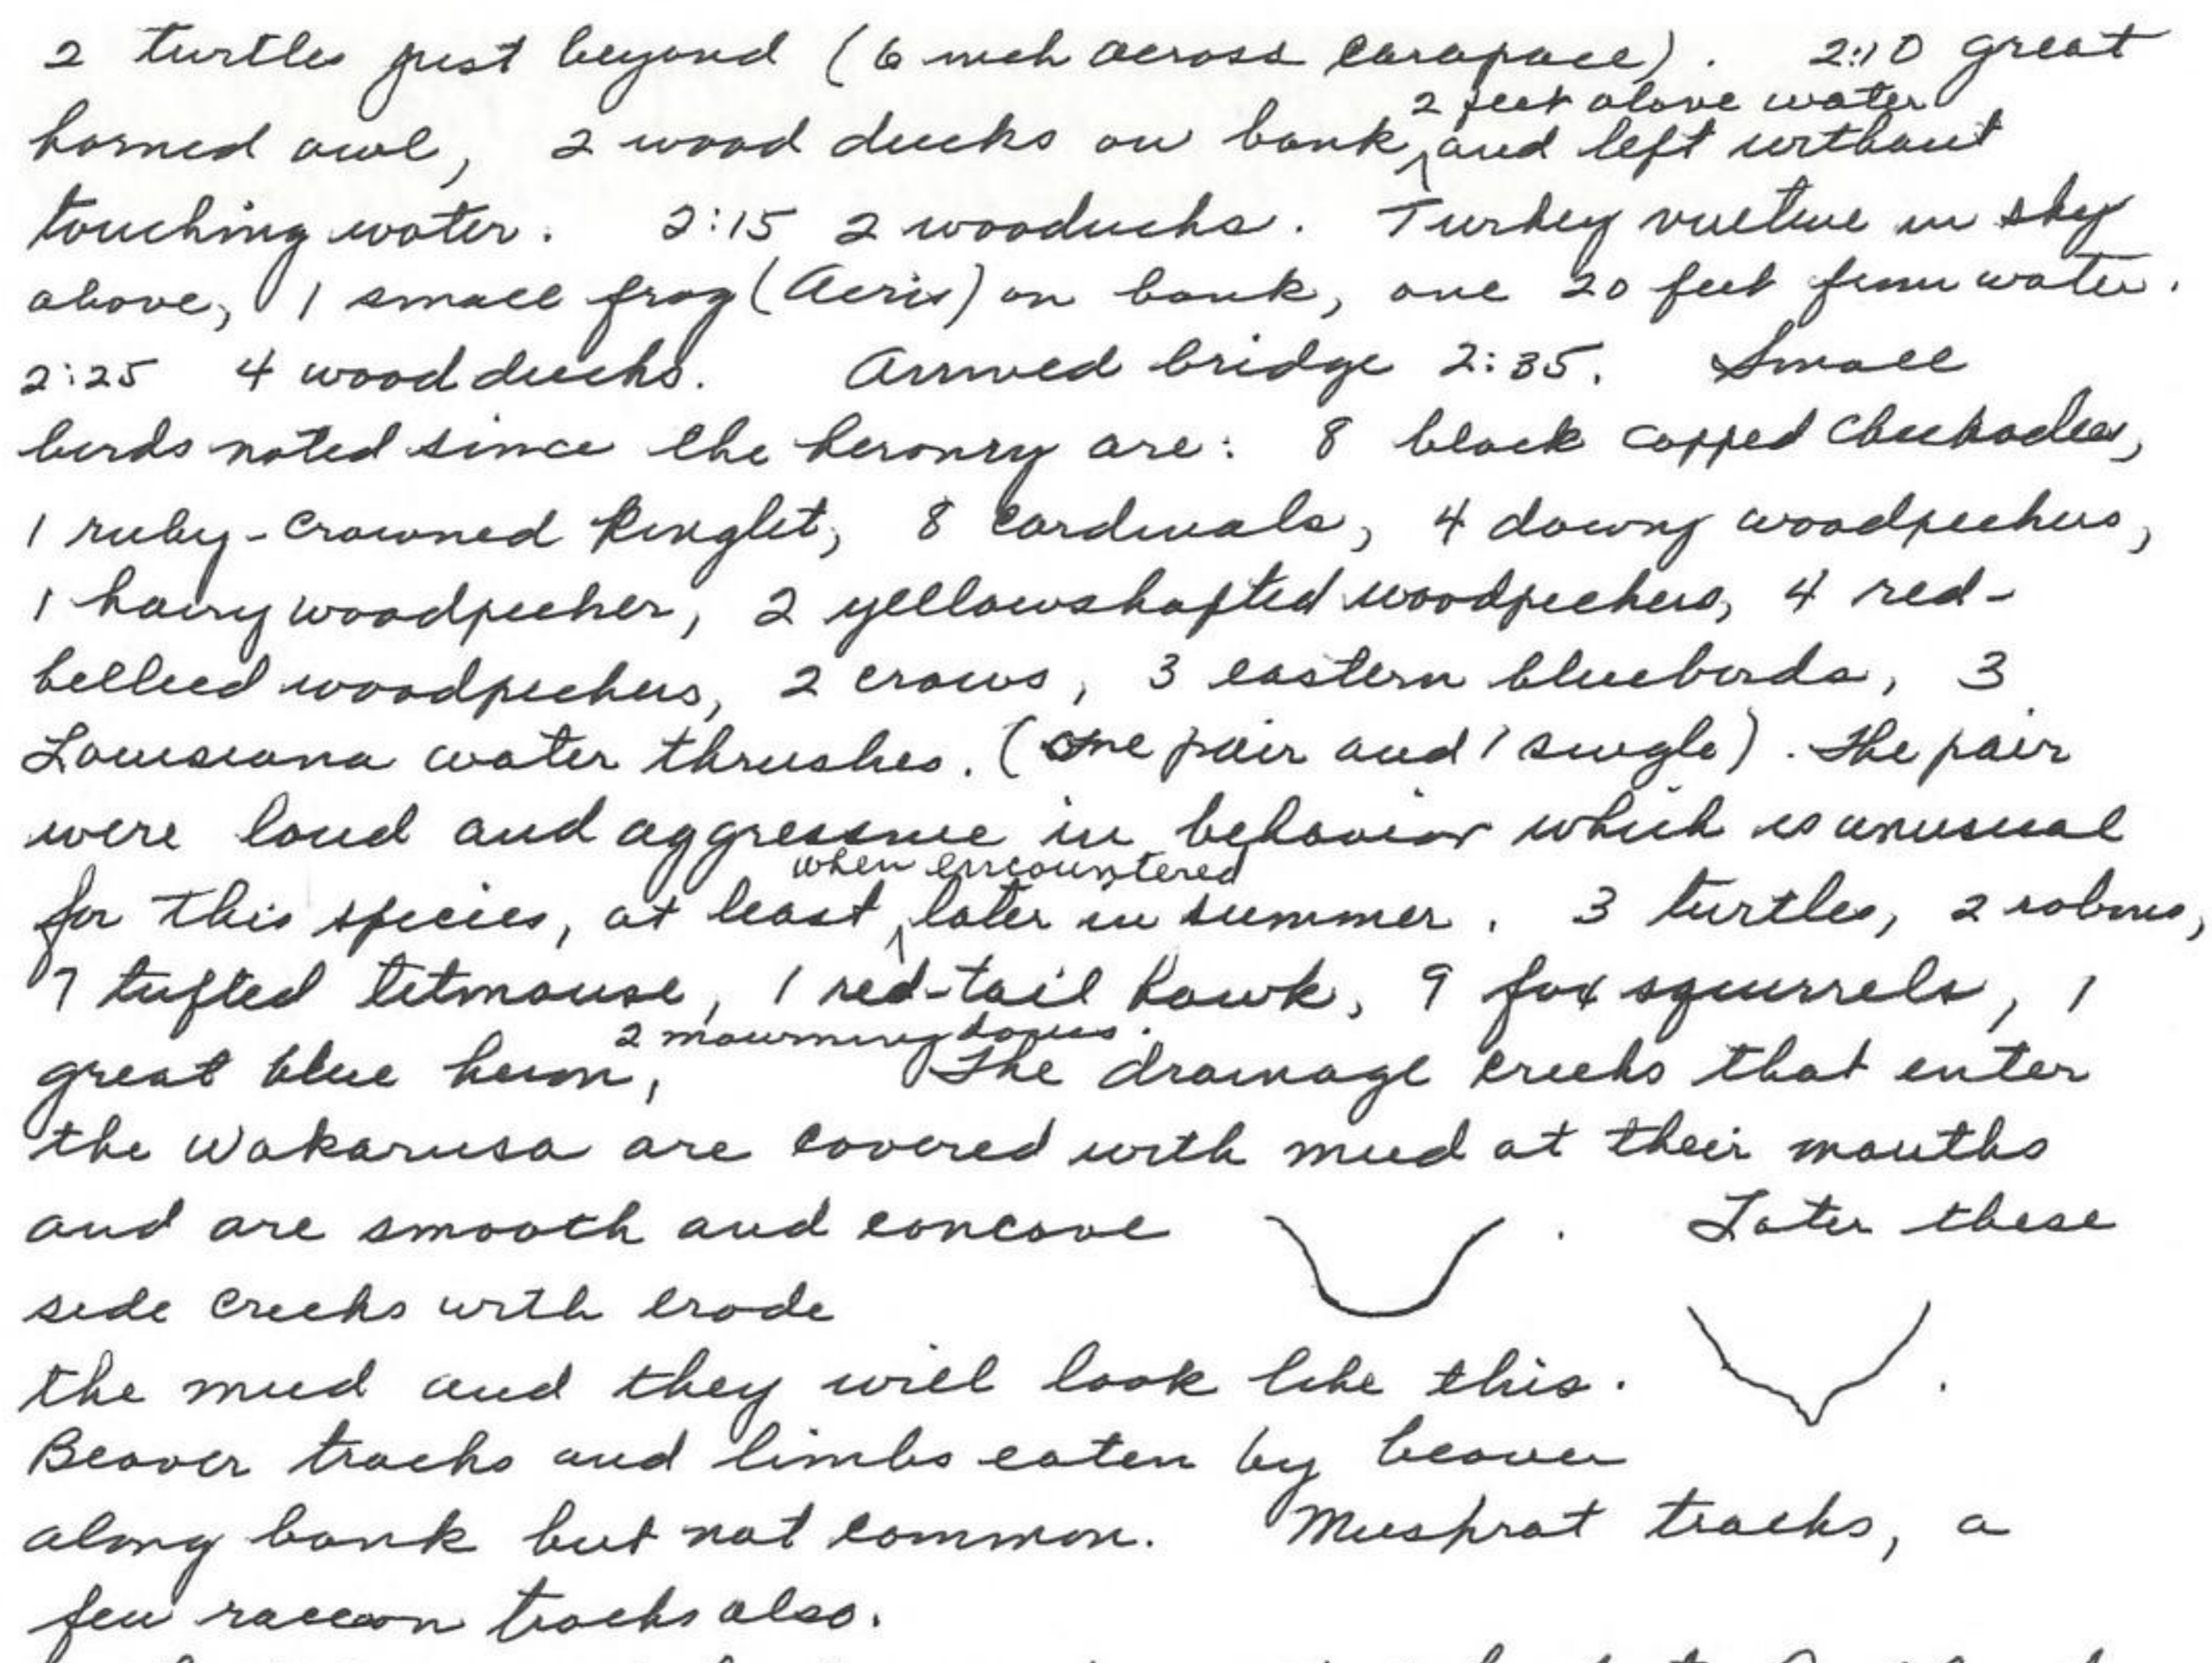 2 turtles just beyond (6 inch across carapace). 2:10 great
2 feet above water
horned owl, 2 wood ducks on bank and left without
touching water. 2:15 2 wooducks. Turkey vulture in sky
above, 1 small frog (Acris) on bank, one 20 feet from water.
2:25 4 wood ducks. Arrived bridge 2:35. Small
birds noted since the heronry are: 8 black capped chickadees,
1 ruby-crowned Kinglet, 8 cardinals, 4 downy woodpeckers,
1 hairy woodpecker, 2 yellowshafted woodpeckers, 4 red-
bellied woodpeckers, 2 crows, 3 eastern bluebirds, 3
Louisiana water thrushes. (one pair and 1 single). The pair
were loud and aggressive in behavior which is unusual
when encountered
for this species, at least later in summer. 3 turtles, 2 robins,
7 tufted titmouse, 1 red-tail hawk, 9 fox squirrels, 1
2 mourning doves.
great blue heron, The drainage creeks that enter
the Wakarusa are covered with mud at their mouths
and are smooth and concave . Later these
side creeks with erode
the mud and they will look like this. .
Beaver tracks and limbs eaten by beaver
along bank but not common. Muskrat tracks, a
few raccoon tracks also.